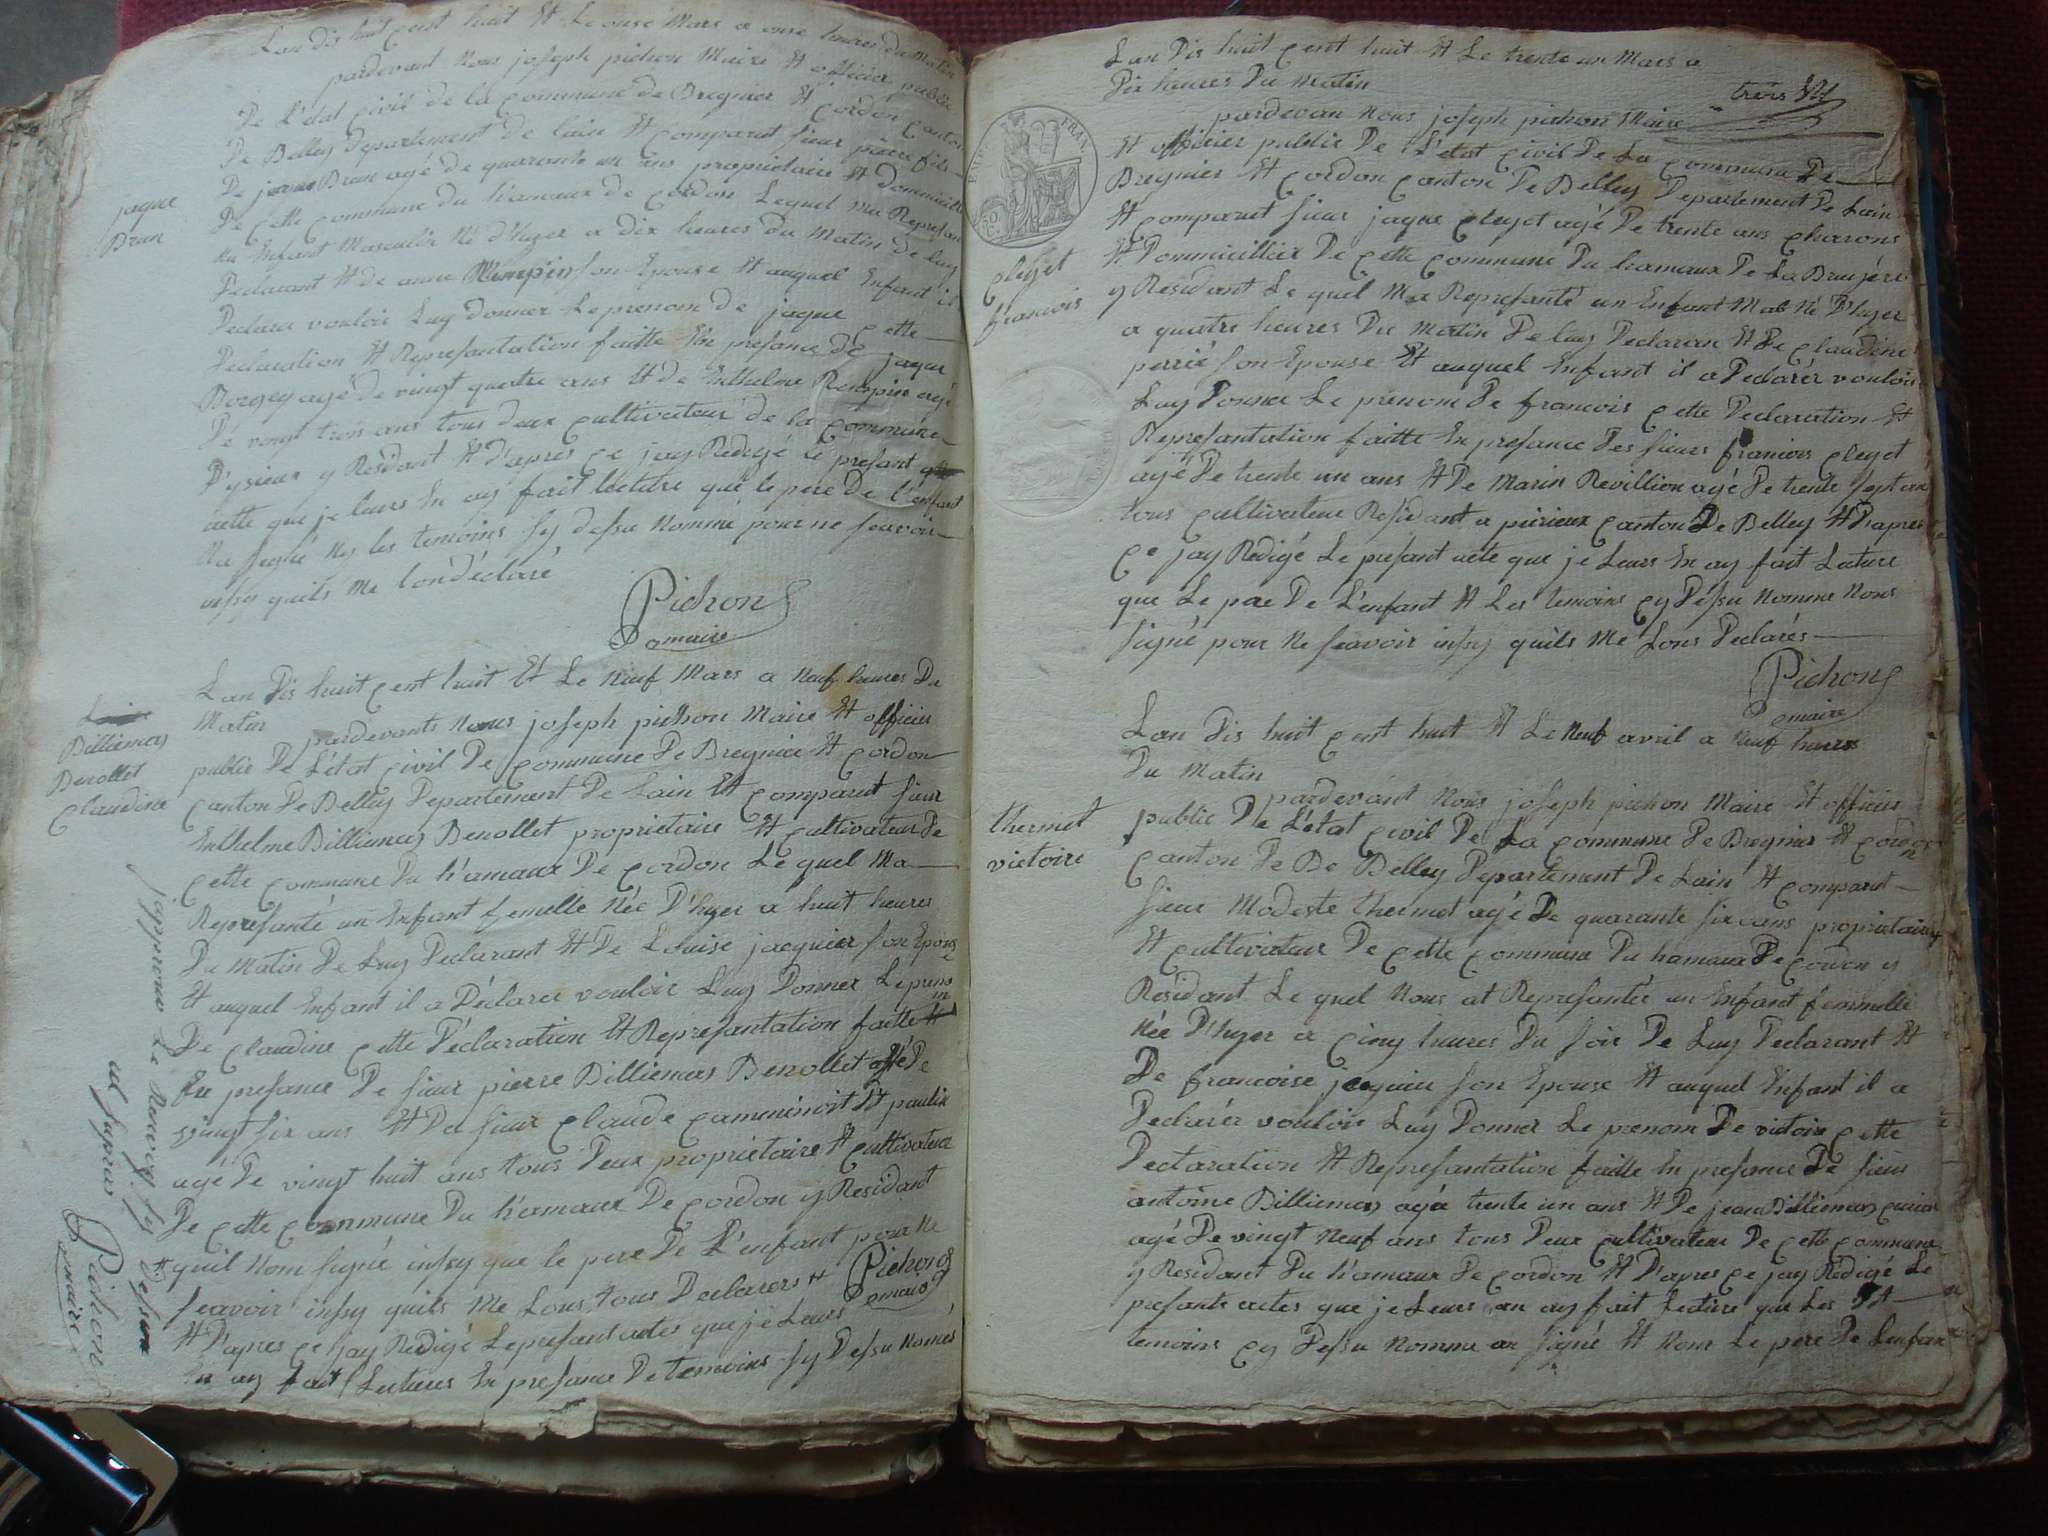 Lan dis huit cent huit Et Le onse Mars a onse heures du Matin
pardevant Nous joseph pichon Maire Et officier public
De L'état civil de la commune de Bregnier Et Cordon canton
De Belley Departement de lain Et comparut sieur pierre fils
De jaque Brun agé de quarante un ans proprietaire Et domicillié
De cette commune du hamaux de Cordon Lequel ma Represanté
un Enfant Masculin Né d'hyer a dix heures du Matin De luy
Declarant Et de anne son Epouse Et auquel Enfant il
Declare vouloir Luy Donner Le prenom de jaque cette
Declaration Et Represantation faitte En presance de jaque
Borgey agé de vingt quatre ans Et de Enthelme Rempin agé
De vingt trois ans tous deux cultivateur de la commune
D'ysieux y Residant Et d'aprés ce jay Redigé le presant
acte que je leurs En ay fait lecture que le pere De l'enfant
Na signé Ny les temoins sy dessu Nommé pour ne scavoir
insy quils me lon déclaré
Pichon
maire
jaque
Brun
Lan Dis huit cent huit Et Le Neuf Mars a Neuf heures Du
Matin
pardevants Nous joseph pichon Maire Et officier
public De L'état civil De commune De Bregnier Et Cordon
Canton De Belley Departement De Lain Et comparut sieur
Enthelme Billiemas Benollet proprietaire Et cultivateur De
cette commune Du h'amaux De Cordon Le quel Ma
Represanté un Enfant femelle Née D'hyer a huit heures
Du Matin De Luy Declarant Et De Louise jacquier son Epouse
Et auquel Enfant il a Déclarer vouloir Luy Donner Le prenom
De Claudine cette Déclaration Et Represantation faitte
En presance De sieur pierre Billiemas Benollet agé De
vingt six ans Et De sieur Claude Et paulin
agé De vingt huit ans tous Deux proprietaire Et cultivateur
De cette commune Du h'amaux De Cordon y Residant
quil Nom signé insy que le pere De L'enfant pour Ne
scavoir insy quils Me Lons tous Declarers Et Pichon
maire
Et D'apres ce jay Redigé Le presant actes que je Leurs
En ay fait Lectures En presance De temoins sy Dessu Només
Billiemas
Benollet
Claudine
japprouve Le Renvoy sy Dessu
Pichon
maire
Lan Dis huit cent huit Et Le trente un Mars a
Dix heures Du Matin
trois
pardevan Nous joseph pichon Maire
Et officier public De L'état civil De La commune De
Bregnier Et Cordon Canton De Belley Departement De Lain
Et comparut sieur jaque Cleyet agé De trente ans charons
Et Dommicillier De cette commune Du hamaux De La Bruyére
y Residant Le quel Ma Represanté un Enfant Mal Né D'hyer
a quatre heures Du Matin De luy Declaran Et De Claudine
perrié son Epouse Et auquel Enfant il a Declarér vouloir
Luy Donner Le prénom De francois cette Declaration Et
Represantation faitte En presance Des sieurs francois Cleyet
agé De trente un ans Et De Marin Revillion agé De trente sept ans
tous cultivateur Residant a pérrieux canton De Belley Et D'apres
ce jay Redigé Le presant acte que je Leurs En ay fait Lecture
que Le pere De L'enfant Et Les temoins cy Dessu Nomme Nons
signé pour Ne scavoir insy quils Me Lons Declarés
Pichon
maire
Cleyet
francois
Lan Dis huit cent huit Et Le Neuf avril a Neuf heures
Du Matin
pardevant Nous joseph pichon Maire Et officier
public De L'état civil De La commune De Bregnier Et Cordon
Canton De De Belley Departement De Lain Et comparut
sieur Modeste thermet agé De quarante six ans proprietaire
Et cultivateur De cette commune Du hamaux De Cordon y
Résidant Le quel Nous at Represantér un Enfant femmelle
Née D'hyer a cinq heures Du soir De Luy Declarant Et
De francoise jcquier son Epouse Et auquel Enfant il a
Declarér vouloir Luy Donner Le prenom De victoire cette
Declaration Et Represantation faitte En presance De sieur
antoine Billiemas agé trente un ans Et De jean Billiemas
agé De vingt Neuf ans tous Deux cultivateur De cette commune
y Residant Du h'amaux De Cordon Et D'apres ce jay Rédigé Le
presante actes que je Leurs an ay fait Lecture que Les
temoins cy Dessu Nomme on signé Et Non Le pere De Lenfan
thermet
victoire